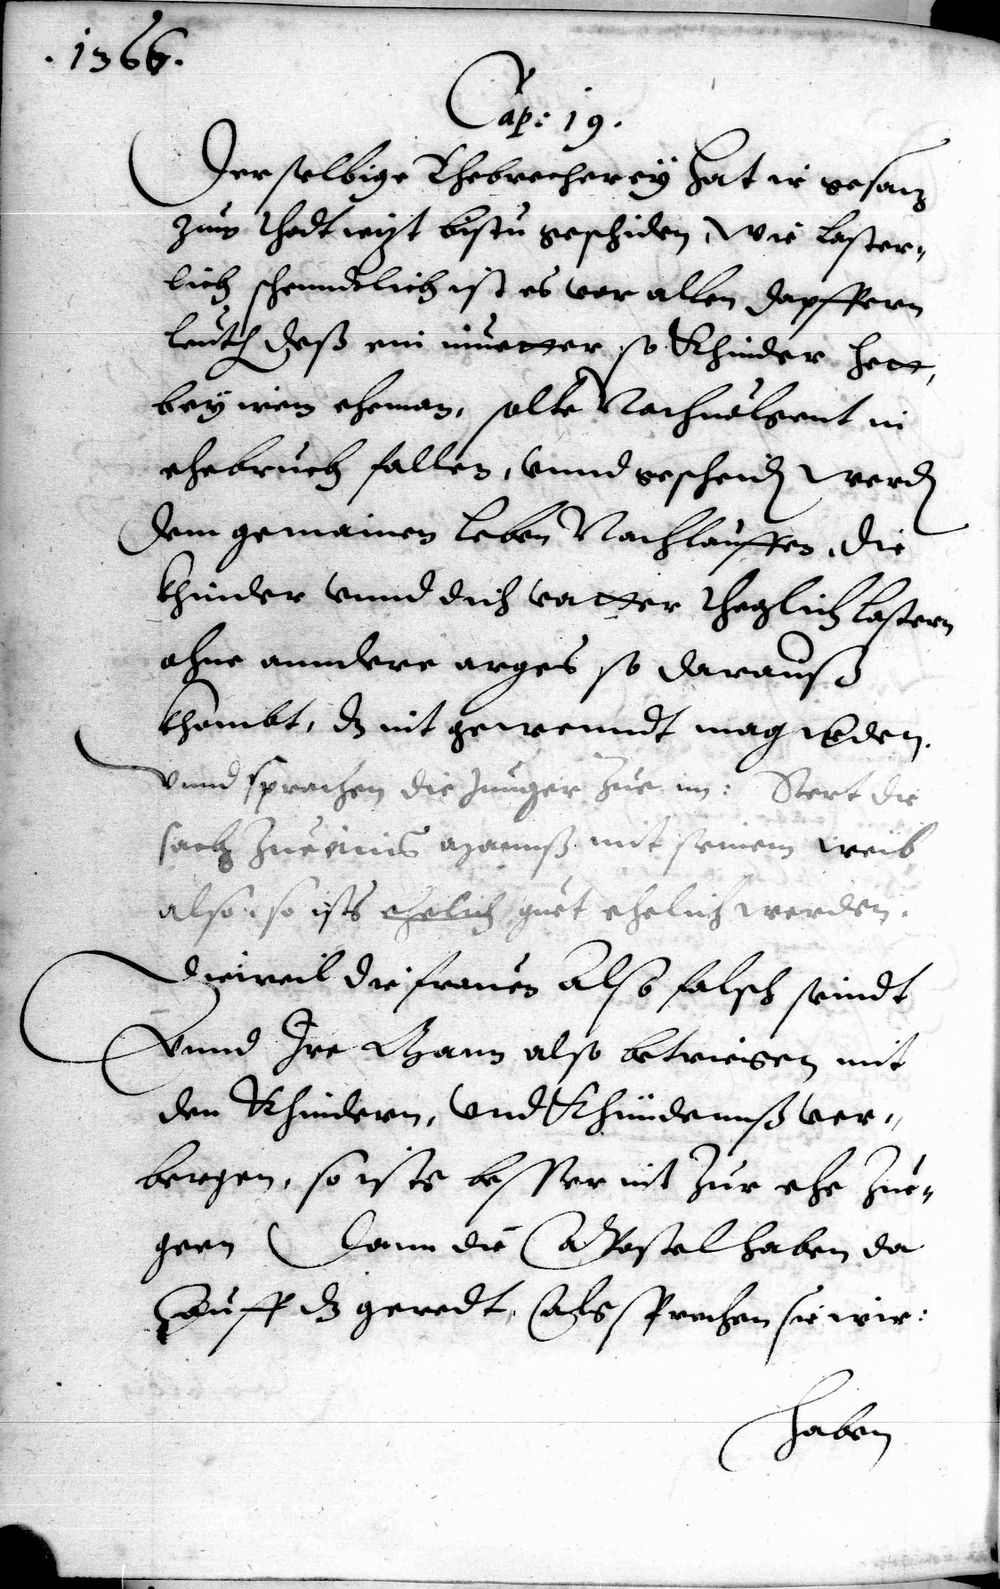 .1366.
Cap: 19.
Derselbige Ehebrecherey hat ir gesatz
zum Thodt ietzt bistu geschiden, wie laster-
lich schenndtlich ist es vor allen dapffern
leuth daß ein muetter so Khinder hett,
bey irem eheman, solte Nachuolgent in
ehebruch fallen, vnnd gescheid werd
dem gemainen leben Nachlauffen, die
khinder vnnd dich vatter theglich lastern
ohne anndere arges so darauß
khombt, dz nit gewenndt mag werden.
Vnnd sprachen die Junger zue im: Stett die
sach zue einis manß mit seinem weib
also, so ists ehelich guet ehelich werden.
Dieweil die frauen also falsch seindt
Vnnd Ire Mann also betriegen mit
den Khindern, vnd Khündtnuß ver-
bergen, so ists besser nit zur ehe zue-
geen (Dann die Apostel haben da
auff dz geredt, als sprechen sie wir:
haben